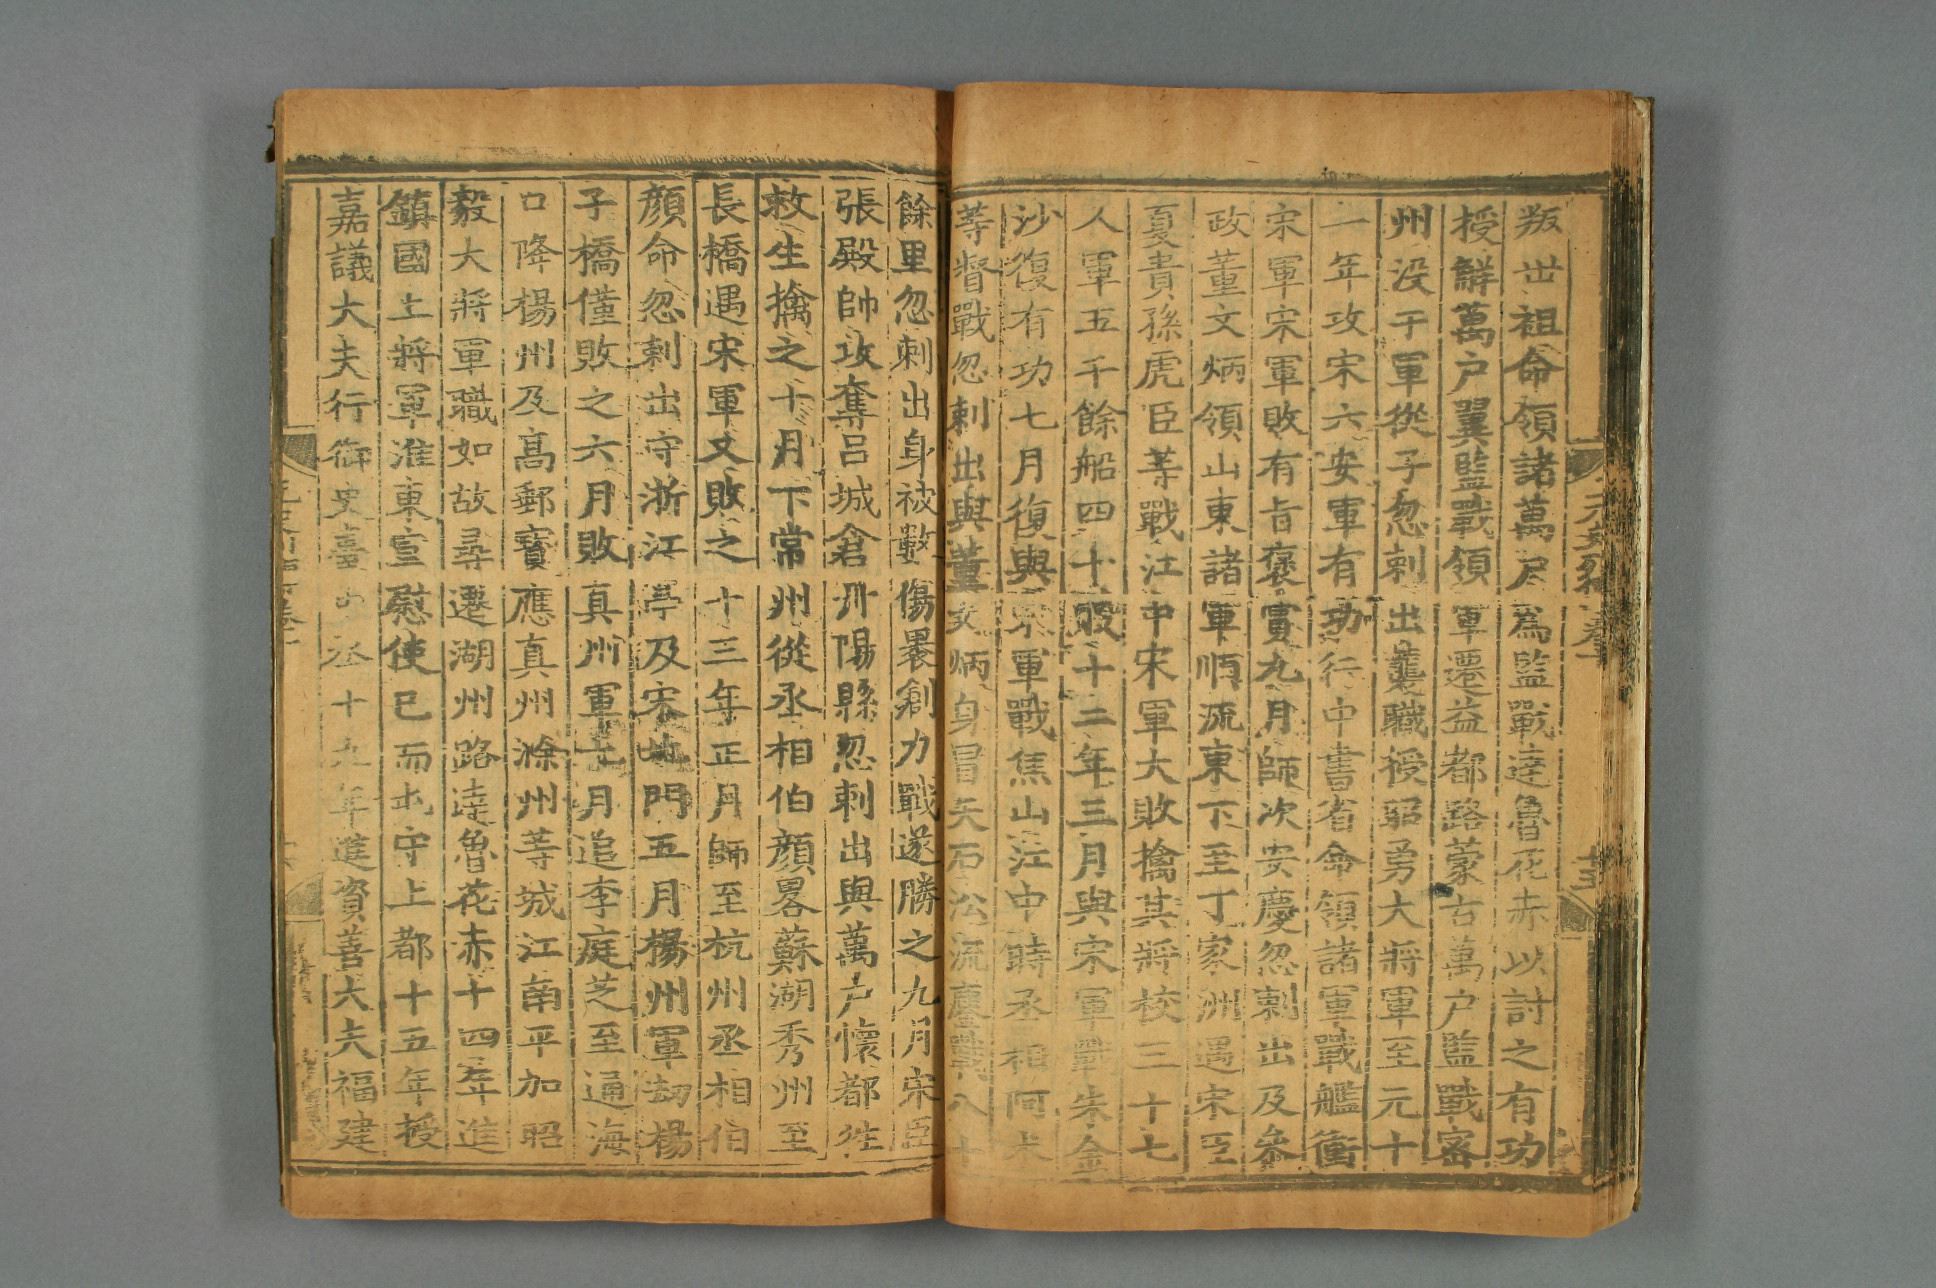 叛世祖命領諸萬戶為監戰達魯花赤以討之有功
授鮮萬戶翼監戰領軍遷益都路蒙古萬戶監戰密
州没于軍從子忽剌出襲職授昭勇大將軍至元十
一年攻宋六安軍有功行中書省命領諸軍戰艦衝
宋軍宋軍敗有旨褒賞九月師次安慶忽剌出及參
政董文炳領山東諸軍順流東下至丁家洲遇宋臣
夏貴孫虎臣等戰江中宋軍大敗擒其將校三十七
人軍五千餘船四十艘十二年三月與宋軍戰朱金
沙復有功七月復與宋軍戰焦山江中時丞相阿朮
等督戰忽剌出與董文炳身冒矢石沿流鏖戰八十
餘里忽剌出身被數傷褁創力戰遂勝之九月宋臣
張殿帥攻奪呂城倉丹陽縣忽剌出與萬户懷都往
救生擒之十月下常州從丞相伯顔畧蘇湖秀州至
長橋遇宋軍又敗之十三年正月師至杭州丞相伯
顔命忽剌出守浙江亭及宋北門五月楊州軍劫楊
子橋僅敗之六月敗真州軍七月追李庭芝至通海
口降楊州及高郵寶應真州滁州等城江南平加昭
毅大將軍職如故尋遷湖州路達魯花赤十四年進
鎮國上將軍淮東宣慰使已而屯守上都十五年授
嘉議大夫行御史臺中丞十九年進資善大夫福建